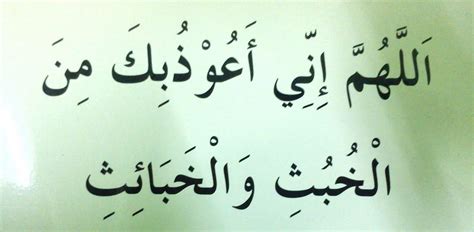 اَللَّهُمَّ إِنِّي أَعُوْذُبِكَ مِنَ
الْخُبُثِ وَالْخَبَائِثِ